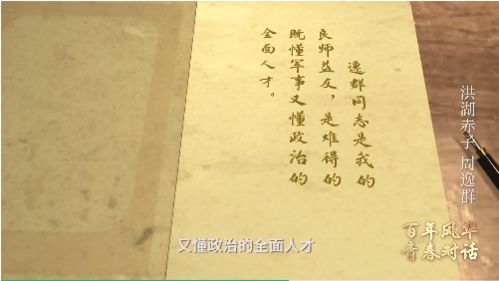 逸群同志是我的
良师益友，是难得的
既懂军事又懂政治的
全面人才。
洪湖赤子 周逸群
百年风华
青春对话
又懂政治的全面人才